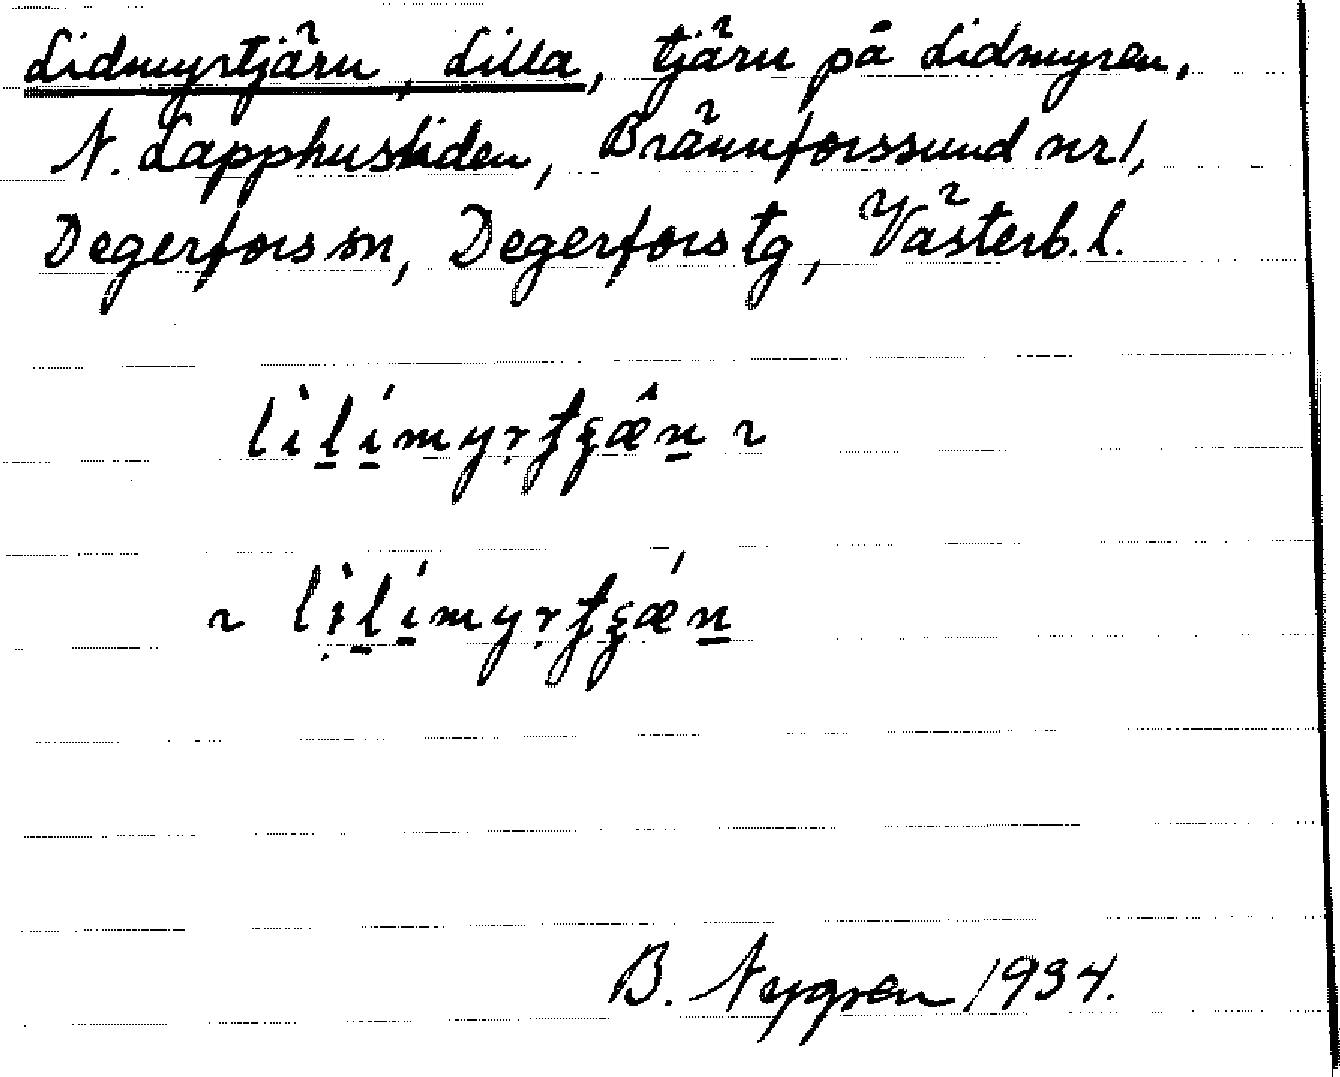 Lidmyrtjärn, Lilla, tjärn på Lidmyren,
N. Lapphusliden, Brännforssund nr 1,
Degerfors sn, Degerfors tg, Västerb. l.
B. Nygren 1934.